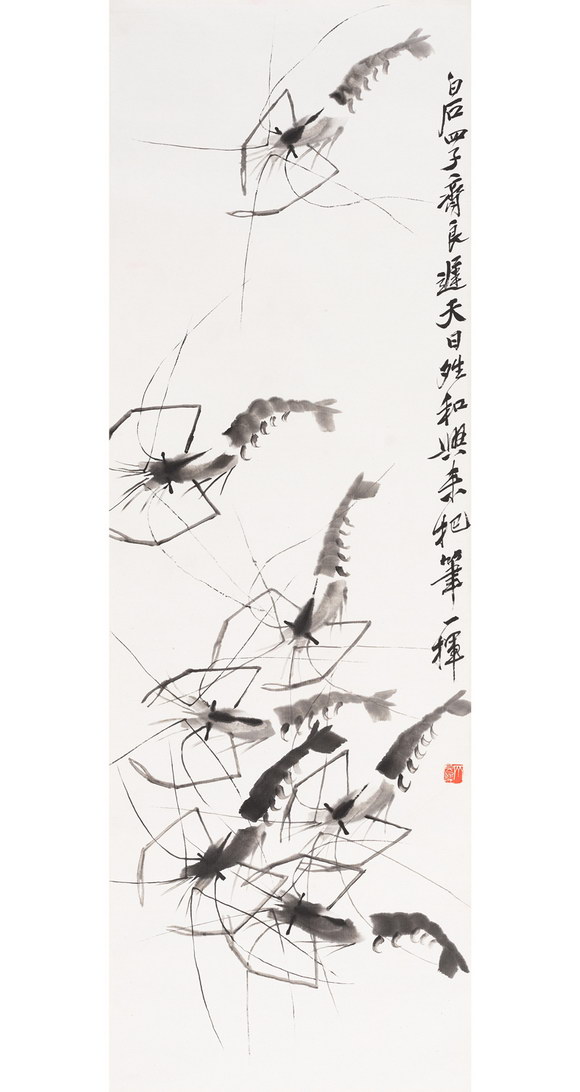 白石四子齊良遲天日夝和興來把筆一揮